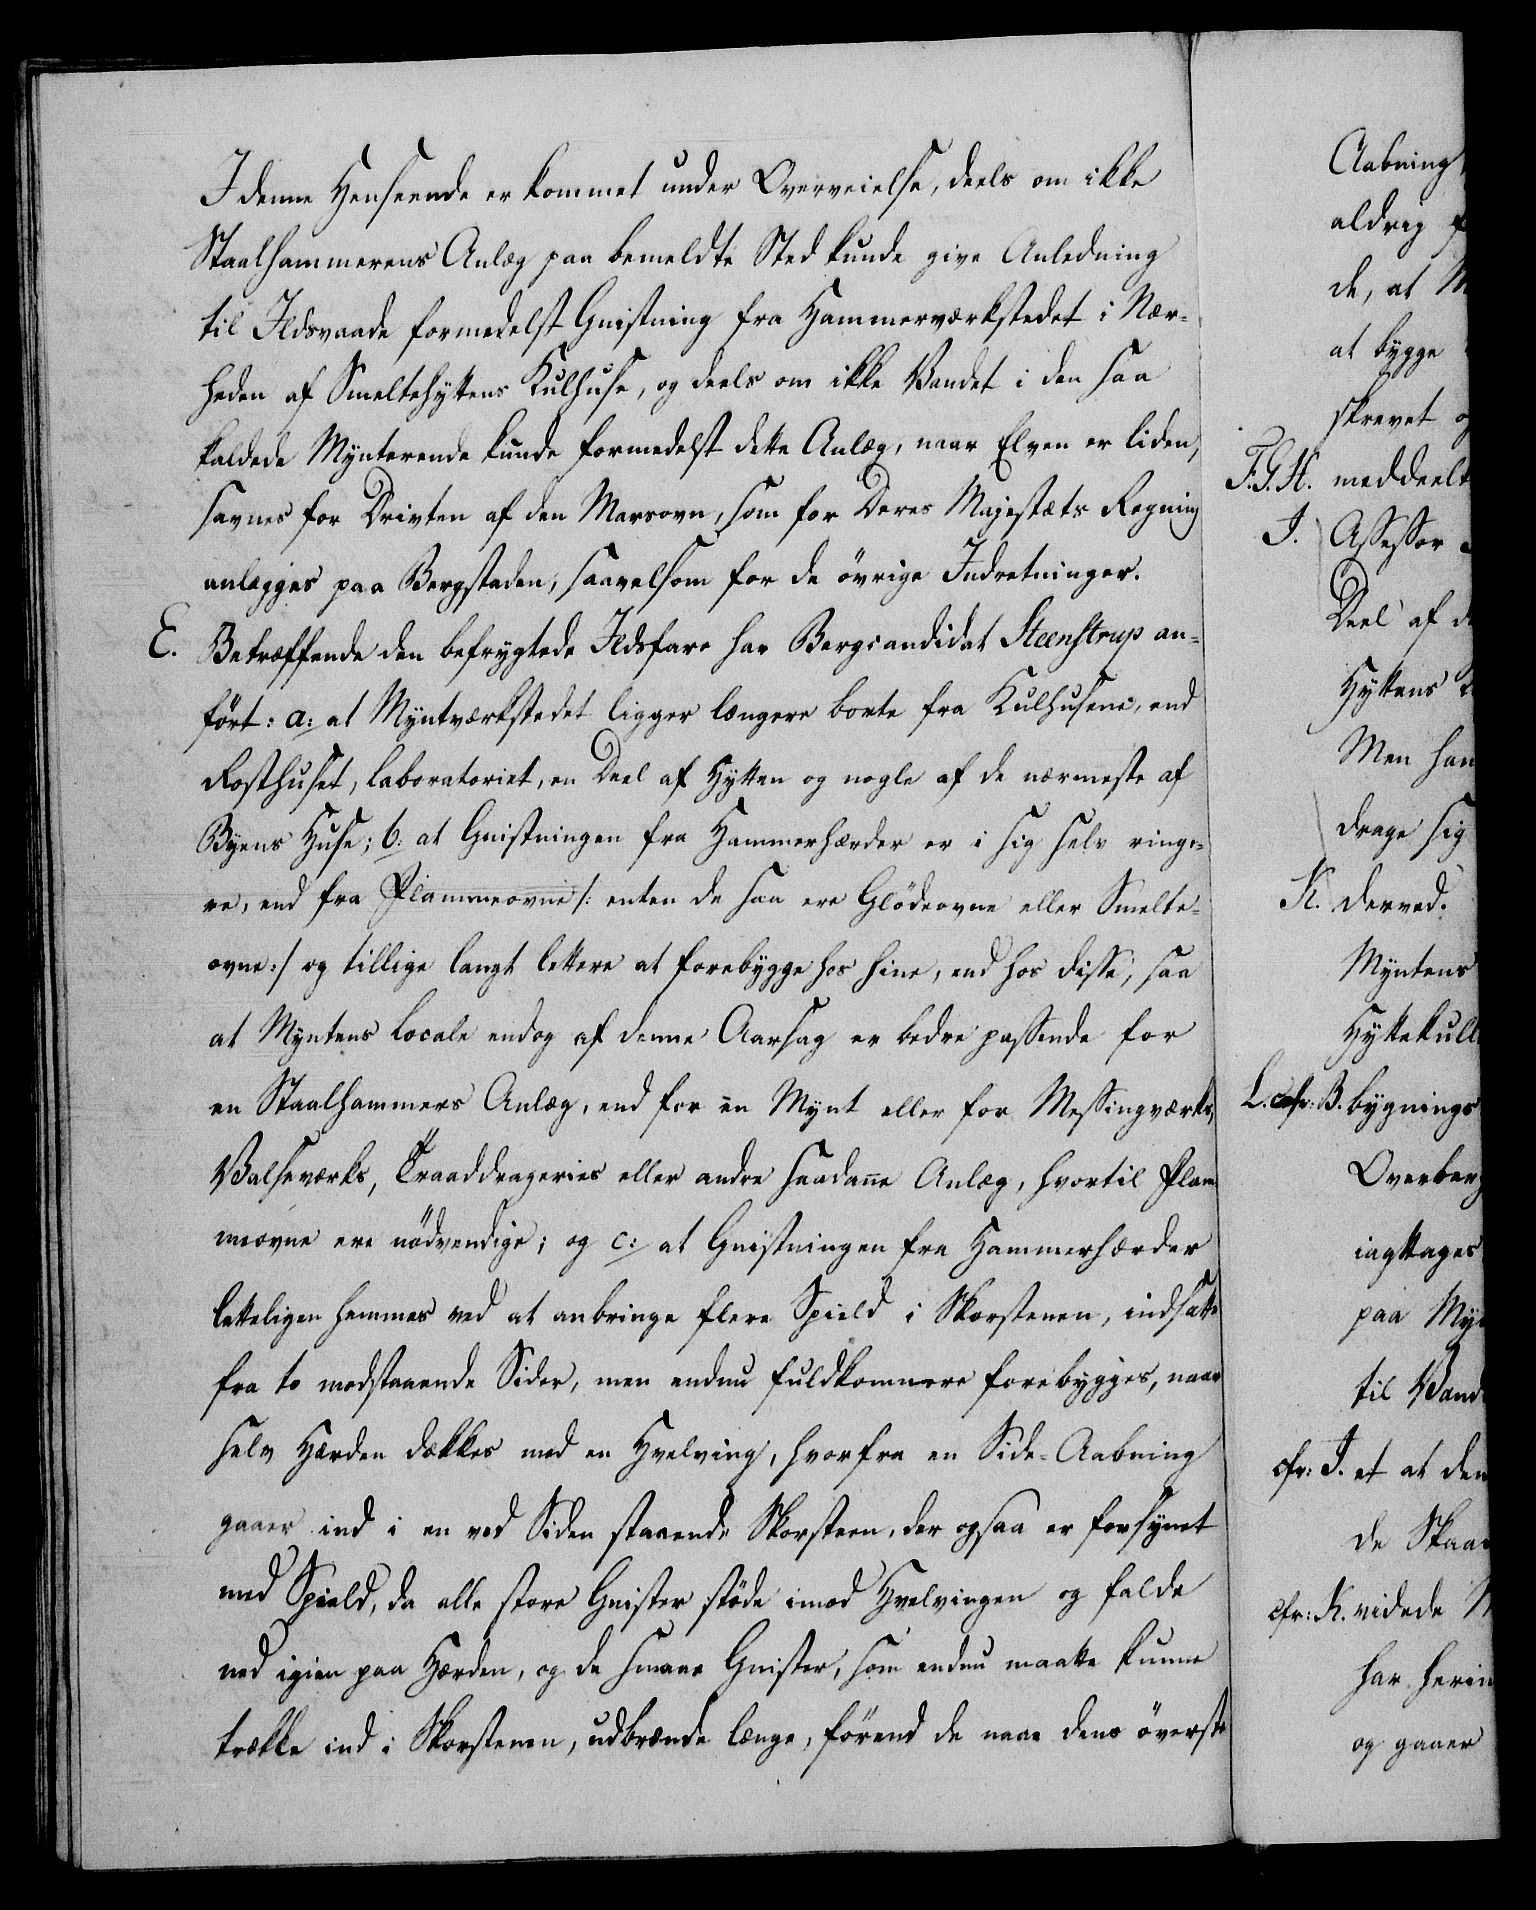 I denne Henseende er kommet under Overveielse, deels om ikke
Staalhammerens Anlæg paa bemeldte Sted kunde give Anledning
til Ildsvaade formedelst Gnistning fra Hammerværkstedet i Nær-
heden af Smeltehyttens Kulhuse, og deels om ikke Vandet i den saa
kaldede Mynterende kunde formedelst dette Anlæg, naar Elven er liden,
savnes for Driften af den Marsovn, som for Deres Majestæts Regning
anlægges paa Bergstaden, saavelsom for de övrige Indretninger.
E. Betræffende den befrygtede Ildsfare har Bergcandidat Steenstrup an-
fört: a: at Myntværkstedet ligger længere borte fra Kulhusene, end
Rosthuset, Laboratoriet, en Deel af Hytten og nogle af de nærmeste af
Byens Huse; b: at Gnistningen fra Hammerhærder er i sig selv ringe-
re, end fra Flammeovne /: enten de saa ere Glödeovne eller Smelte-
ovne :/ og tillige langt lettere at forebygge hos hine, end hos disse, saa
at Myntens Locale endog af denne Aarsag er bedre passende for
en Staalhammers Anlæg, end for en Mynt eller for Messingværks,
Valseværks, Traaddrageries eller andre saadanne Anlæg, hvortil Flam
meovne ere nödvendige; og c: at Gnistningen fra Hammerhærder
letteligen hemmes ved at anbringe flere Spield i Skorstenen, indsatte
fra to modstaaende Sider, men endnu fuldkomnere forebygges, naar
selv Hærden dækkes med en Hvelving, hvorfra en Side-Aabning
gaaer ind i en ved Siden staaende Skorsteen, der ogsaa er forsynet
med Spield, da alle store Gnister stöde imod Hvelvingen og falde
ned igien paa Hærden, og de smaae Gnister, som endnu maatte kunne
trække ind i Skorstenen, udbrænde længe, förend de naae dens överste
Aabning
aldrig
de, at
at bygge
skrevet
F.G.H. meddeelt
I. Assessor
Deel af
Hyttens
Men han
drage sig
K. derved.
Myntens
Hyttekull
L. cfr: B. bygnings
Overberg
iagttages
paa Myn
til Vand
cfr: I. et at den
de Skaa
cfr: K. videde
har herin
og gaaer